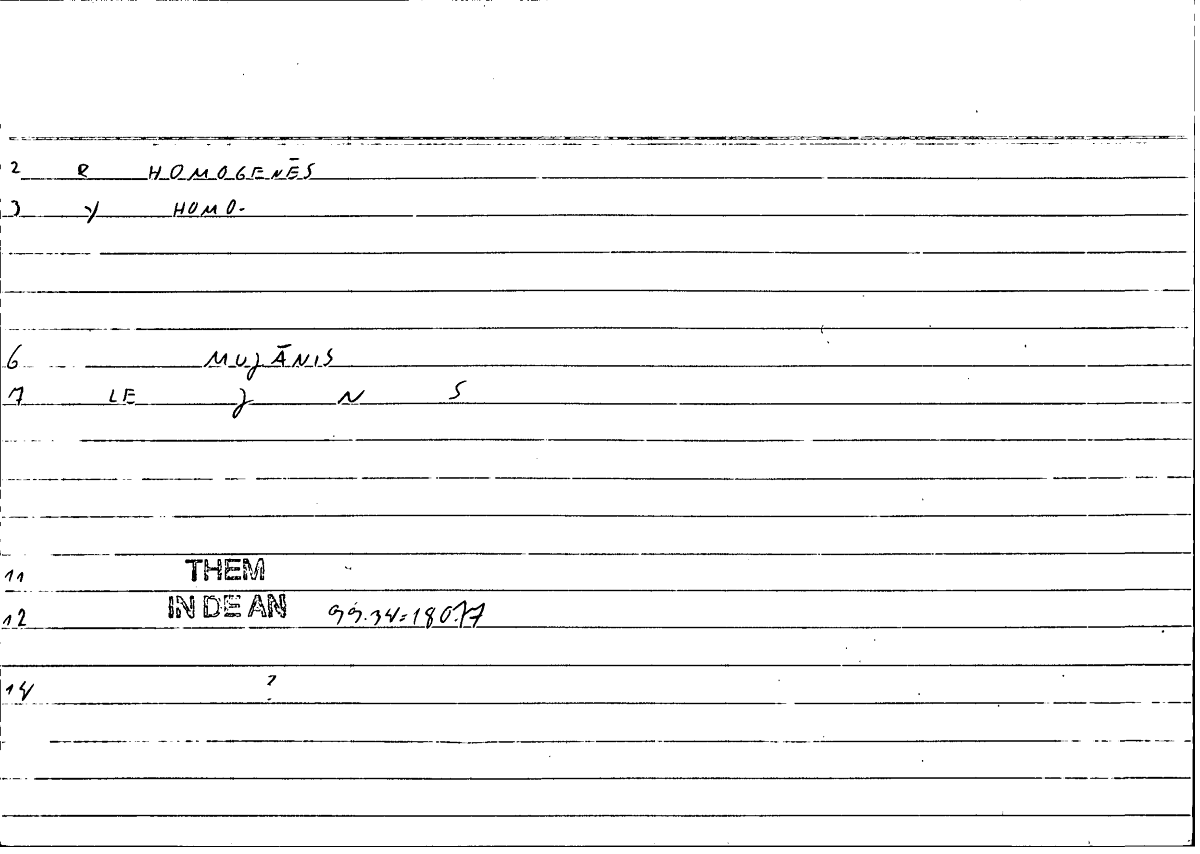 2 R HOMOGENĒS
3 y HOMO.
6 MUJĀNIS
7 LE J N S
11 THEM
12 IN DE AN 99.34=180.77
14 ?